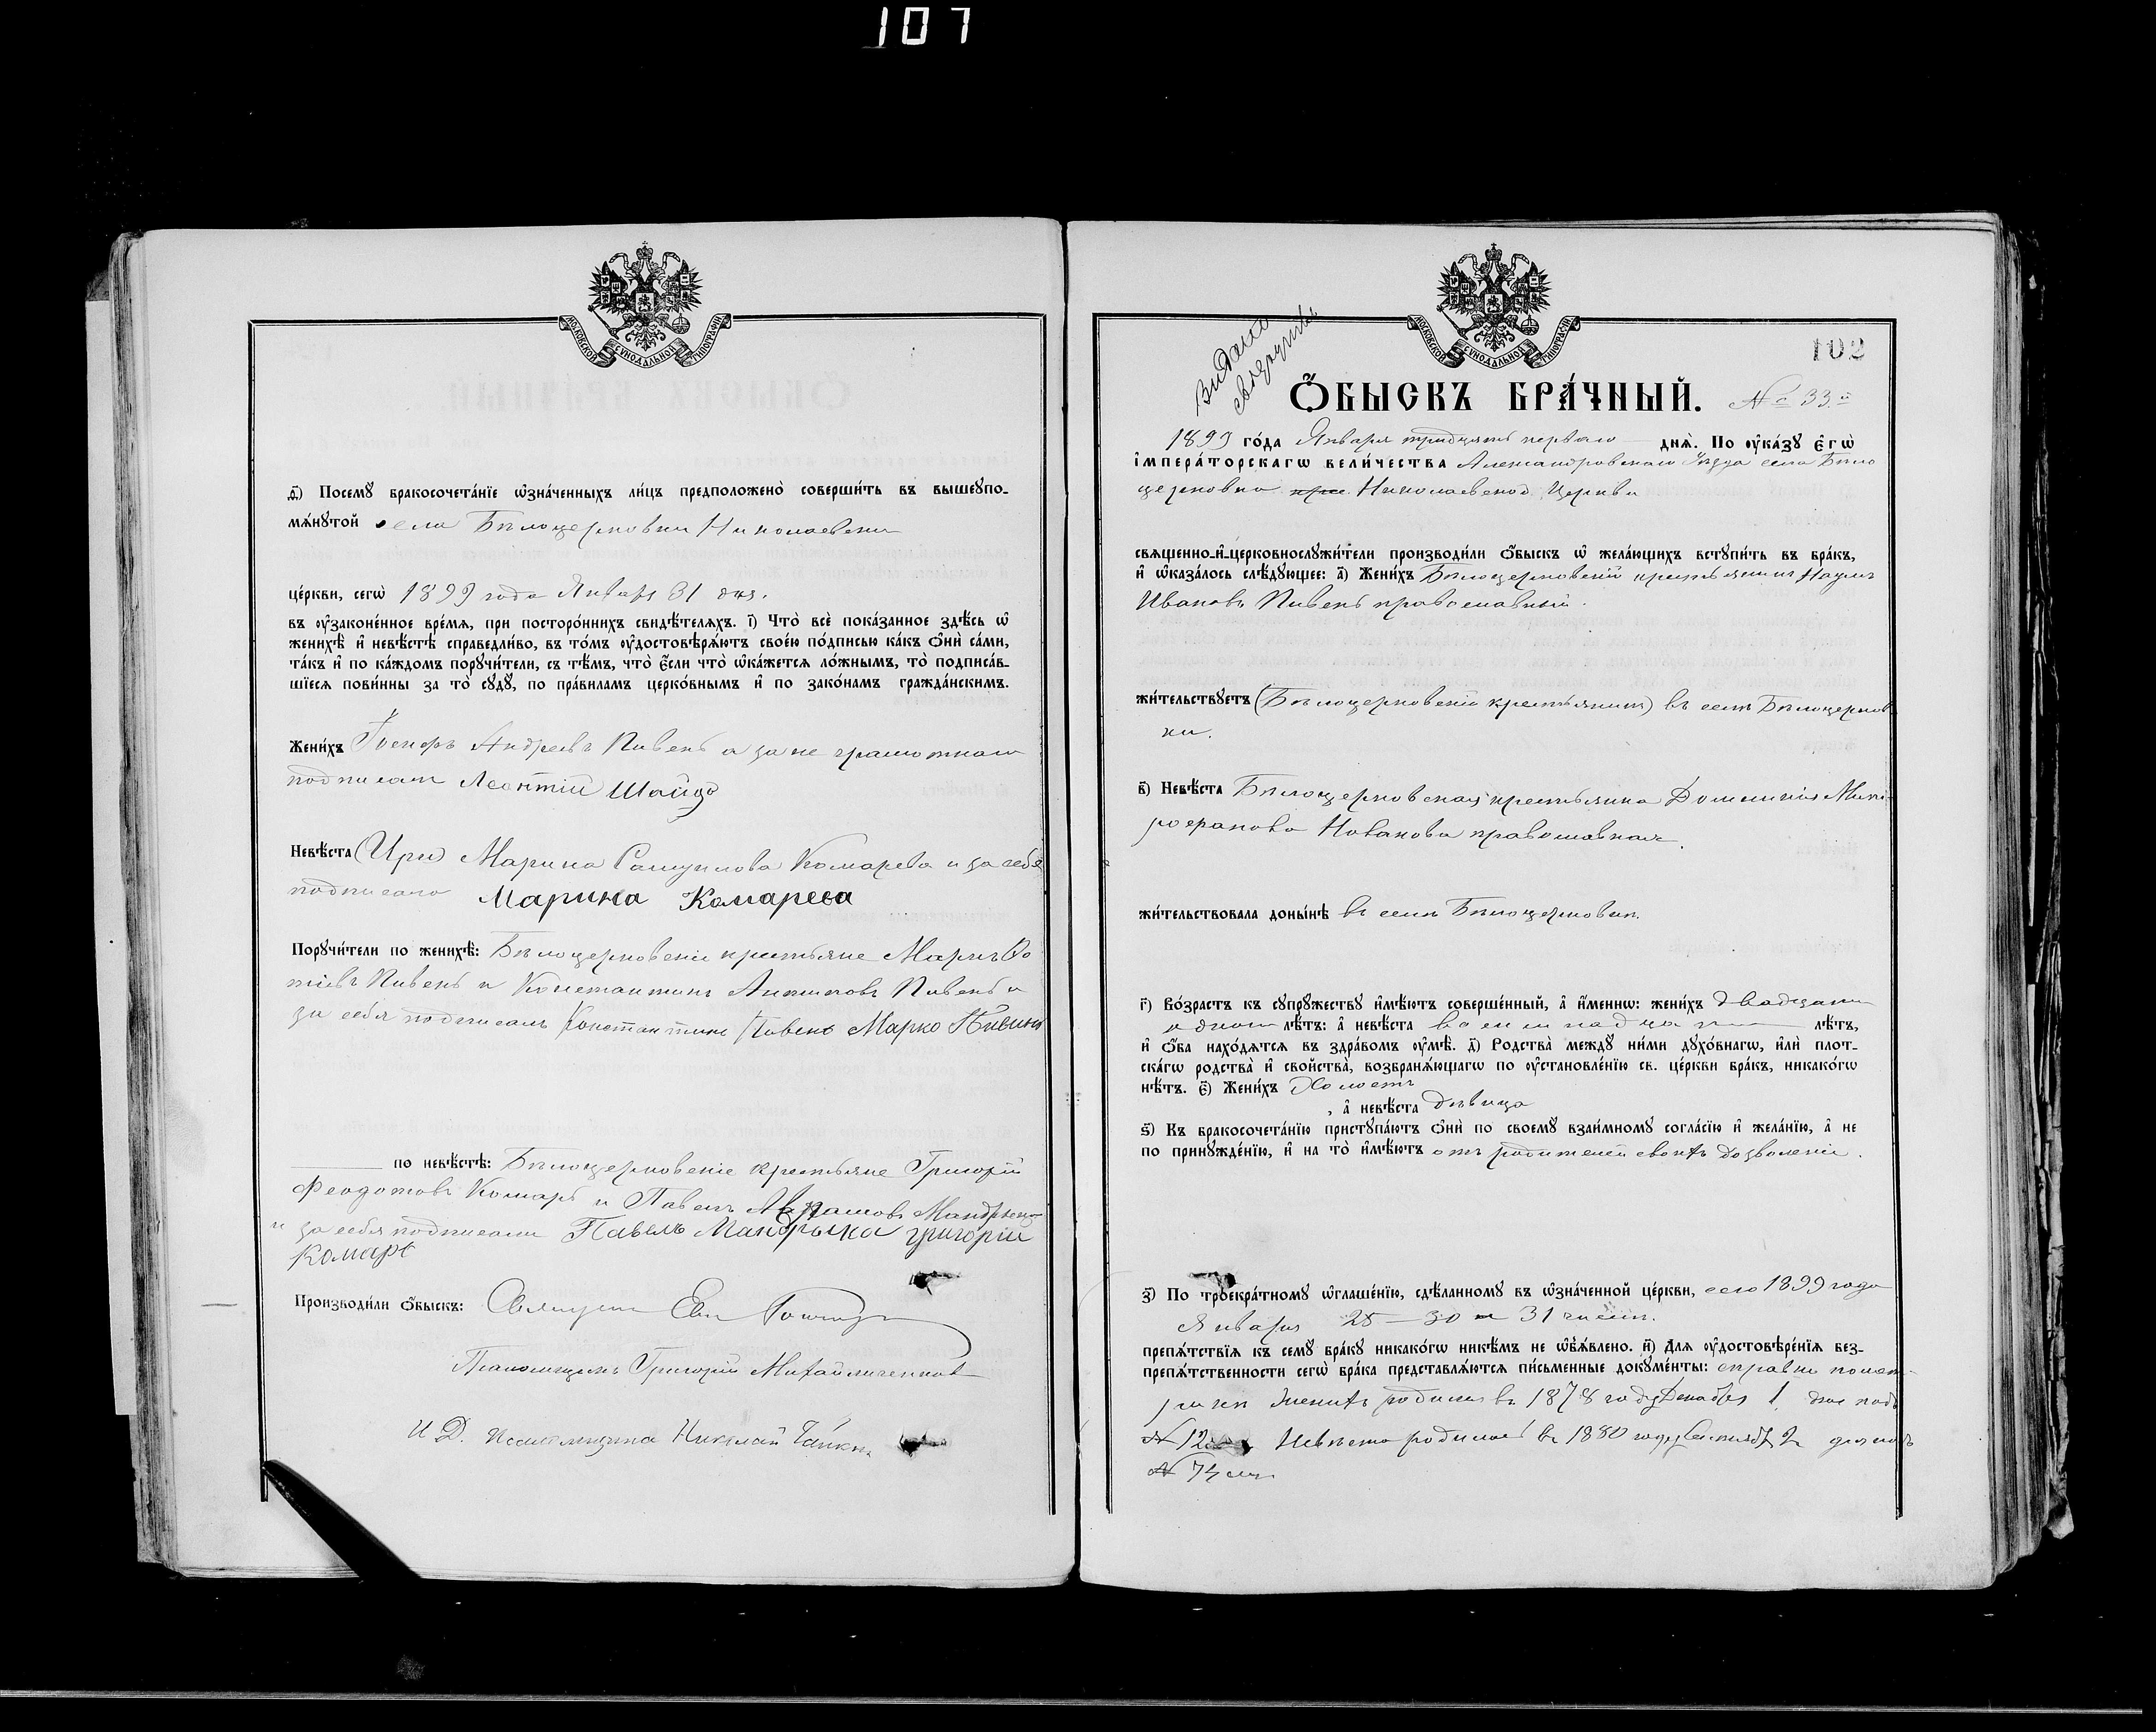 107
МОСКОВСКОЙ СѴНОДАЛЬНОЙ ТИПОГРАФІИ
ѳ҃) Посемꙋ бракосочета́нїе ѡ҆зна́ченныхъ ли́цъ предположено̀ соверши́ть въ вышеꙋпо-
мѧ́нꙋтой села Бѣлоцерковки Николаевской
це́ркви, сегѡ̀ 1899 года Январь 31 дня.
въ ᲂу҆зако́ненное вре́мѧ, при посторо́ннихъ свидѣ́телѧхъ. і҃) Что̀ всѐ пока́занное здѣ́сь ѡ҆
женихѣ̀ и҆ невѣ́стѣ справедли́во, въ то́мъ ᲂу҆достовѣрѧ́ютъ свое́ю по́дписью ка́къ ѻ҆нѝ са́ми,
та́къ и҆ по ка́ждомъ порꙋчи́тели, съ тѣ́мъ, что̀ є҆́сли что̀ ѡ҆ка́жетсѧ ло́жнымъ, то̀ подписа́в-
шїесѧ пови́нны за то̀ сꙋдꙋ̀, по пра́виламъ церко́внымъ и҆ по зако́намъ гражда́нскимъ.
Жени́хъ Андреевъ Пивень а за не грамотнаго
подписалъ Леонтій Шайдо
Невѣ́ста (Ири) Марина Самуилова Комарева и за себя
подписала Марина Комарева
Порꙋчи́тели по женихѣ̀: Бѣлоцерковскіе крестьяне Маркъ Фо
тіевъ Пивень и Константинъ Пивень и
за себя подписалъ Константинъ Пивень Марко Пивинь
по невѣ́стѣ: Бѣлоцерковскіе крестьяне Григорій
Феодотовъ Комарь и Павелъ Мандрыка
и за себя подписали Павелъ Мандрыка григорій
Комарь
Производи́ли ѻ҆́быскъ: Священникъ
Псаломщикъ Григорій Михайличенко
И Д. Псаломщика Николай
МОСКОВСКОЙ СѴНОДАЛЬНОЙ ТИПОГРАФІИ
Видано
102
Ѻ҆́БЫСКЪ БРА́ЧНЫЙ. № 33й
1899 го́да Января тридцать перваго днѧ̀. По ᲂу҆ка́зꙋ є҆гѡ̀
і҆мпера́торскагѡ вели́чества Александровскаго Уѣзда села Бѣло
церковка Николаевской Церкви
свѧще́нно-и҆-церковнослꙋжи́тели производи́ли ѻ҆́быскъ ѡ҆ жела́ющихъ встꙋпи́ть въ бра́къ,
и҆ ѡ҆каза́лось слѣ́дꙋющее: а҃) Жени́хъ Бѣлоцерковскій крестьянинъ Наумъ
Ивановъ Пивень православный.
жи́тельствꙋетъ (Бѣлоцерковскій крестьянинъ) въ селѣ Бѣлоцерков
ки.
в҃) Невѣ́ста Бѣлоцерковская крестьянка Домникія Мит-
рофанова Новакова православная.
жи́тельствовала донынѣ въ селѣ Бѣлоцерковки.
г҃) Во́зрастъ къ сꙋпрꙋ́жествꙋ и҆мѣ́ютъ соверше́нный, а҆ и҆́меннѡ: жени́хъ двадцати
одного лѣ́тъ: а҆ невѣ́ста восемнадцати лѣ́тъ,
и҆ ѻ҆́ба нахо́дѧтсѧ въ здра́вомъ ᲂу҆мѣ̀. д҃) Родства̀ междꙋ ни́ми дꙋхо́внагѡ, и҆лѝ плот-
ска́гѡ родства̀ и҆ свойства̀, возбранѧ́ющагѡ по ᲂу҆становле́нїю св. це́ркви бра́къ, никако́гѡ
нѣ́тъ. є҃) Жени́хъ Холостъ
, а҆ невѣ́ста дѣвица
ѕ҃) Къ бракосочета́нїю пристꙋпа́ютъ ѻ҆нѝ по своемꙋ̀ взаи́мномꙋ согла́сїю и҆ жела́нїю, а҆ не
по принꙋжде́нїю, и҆ на то̀ и҆мѣ́ютъ отъ родителей своихъ дозволеніе.
з҃) По троекра́тномꙋ ѡ҆глаше́нїю, сдѣ́ланномꙋ въ ѡ҆зна́ченной це́ркви, сего 1899 года
Января 25 — 30 и 31 числ.
препѧ́тствїѧ къ семꙋ̀ бра́кꙋ никако́гѡ никѣ́мъ не ѡ҆б̾ѧ́влено. и҃) Длѧ ᲂу҆достовѣре́нїѧ без-
препѧ́тственности сегѡ̀ бра́ка представлѧ́ютсѧ пи́сьменные докꙋме́нты: справки помет-
рикѣ Женихъ родился въ 1878 году Декабря 1 дня подъ
№ 12 Невѣста родилась въ 1880 году Сентября 2 дня подъ
№ 74